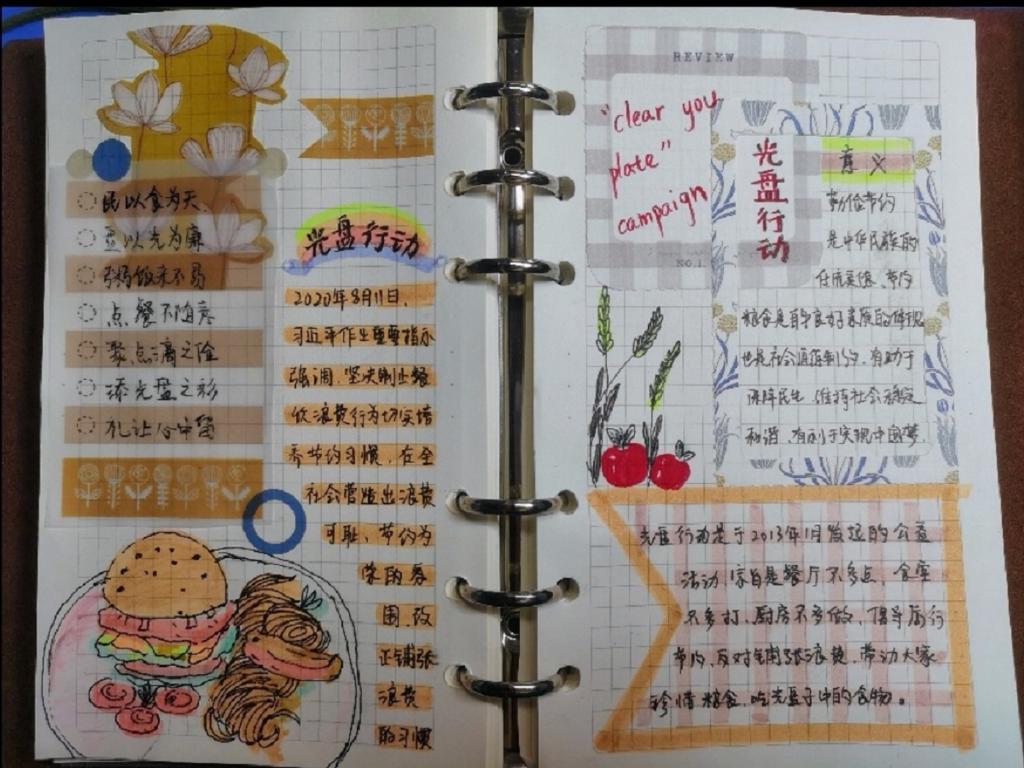 民以食为天
宴以光为廉
粥饭来不易
点餐不随意
聚点滴之德
添光盘之彩
礼让心中留
光盘行动
2020年8月11日,
习近平作出重要指示
强调,坚决制止餐
饮浪费行为切实培
养节约习惯,在全
社会营造出浪费
可耻、节约为
荣的氛
围,改
正铺张
浪费
的习惯
REVIEW
"clear you
plate"
campaign
NO.1.
光盘行动
意义
勤俭节约
是中华民族的
传统美德、节约
粮食是百年良好家族的体现
也是社会道德制约,有助于
保障民生,维持社会稳定
和谐,有利于实现中国梦.
光盘行动是于2013年1月发起的公益
活动,宗旨是餐厅不多点、食堂
不多打、厨房不多做,倡导厉行
节约,反对铺张浪费,带动大家
珍惜粮食,吃光盘子中的食物。